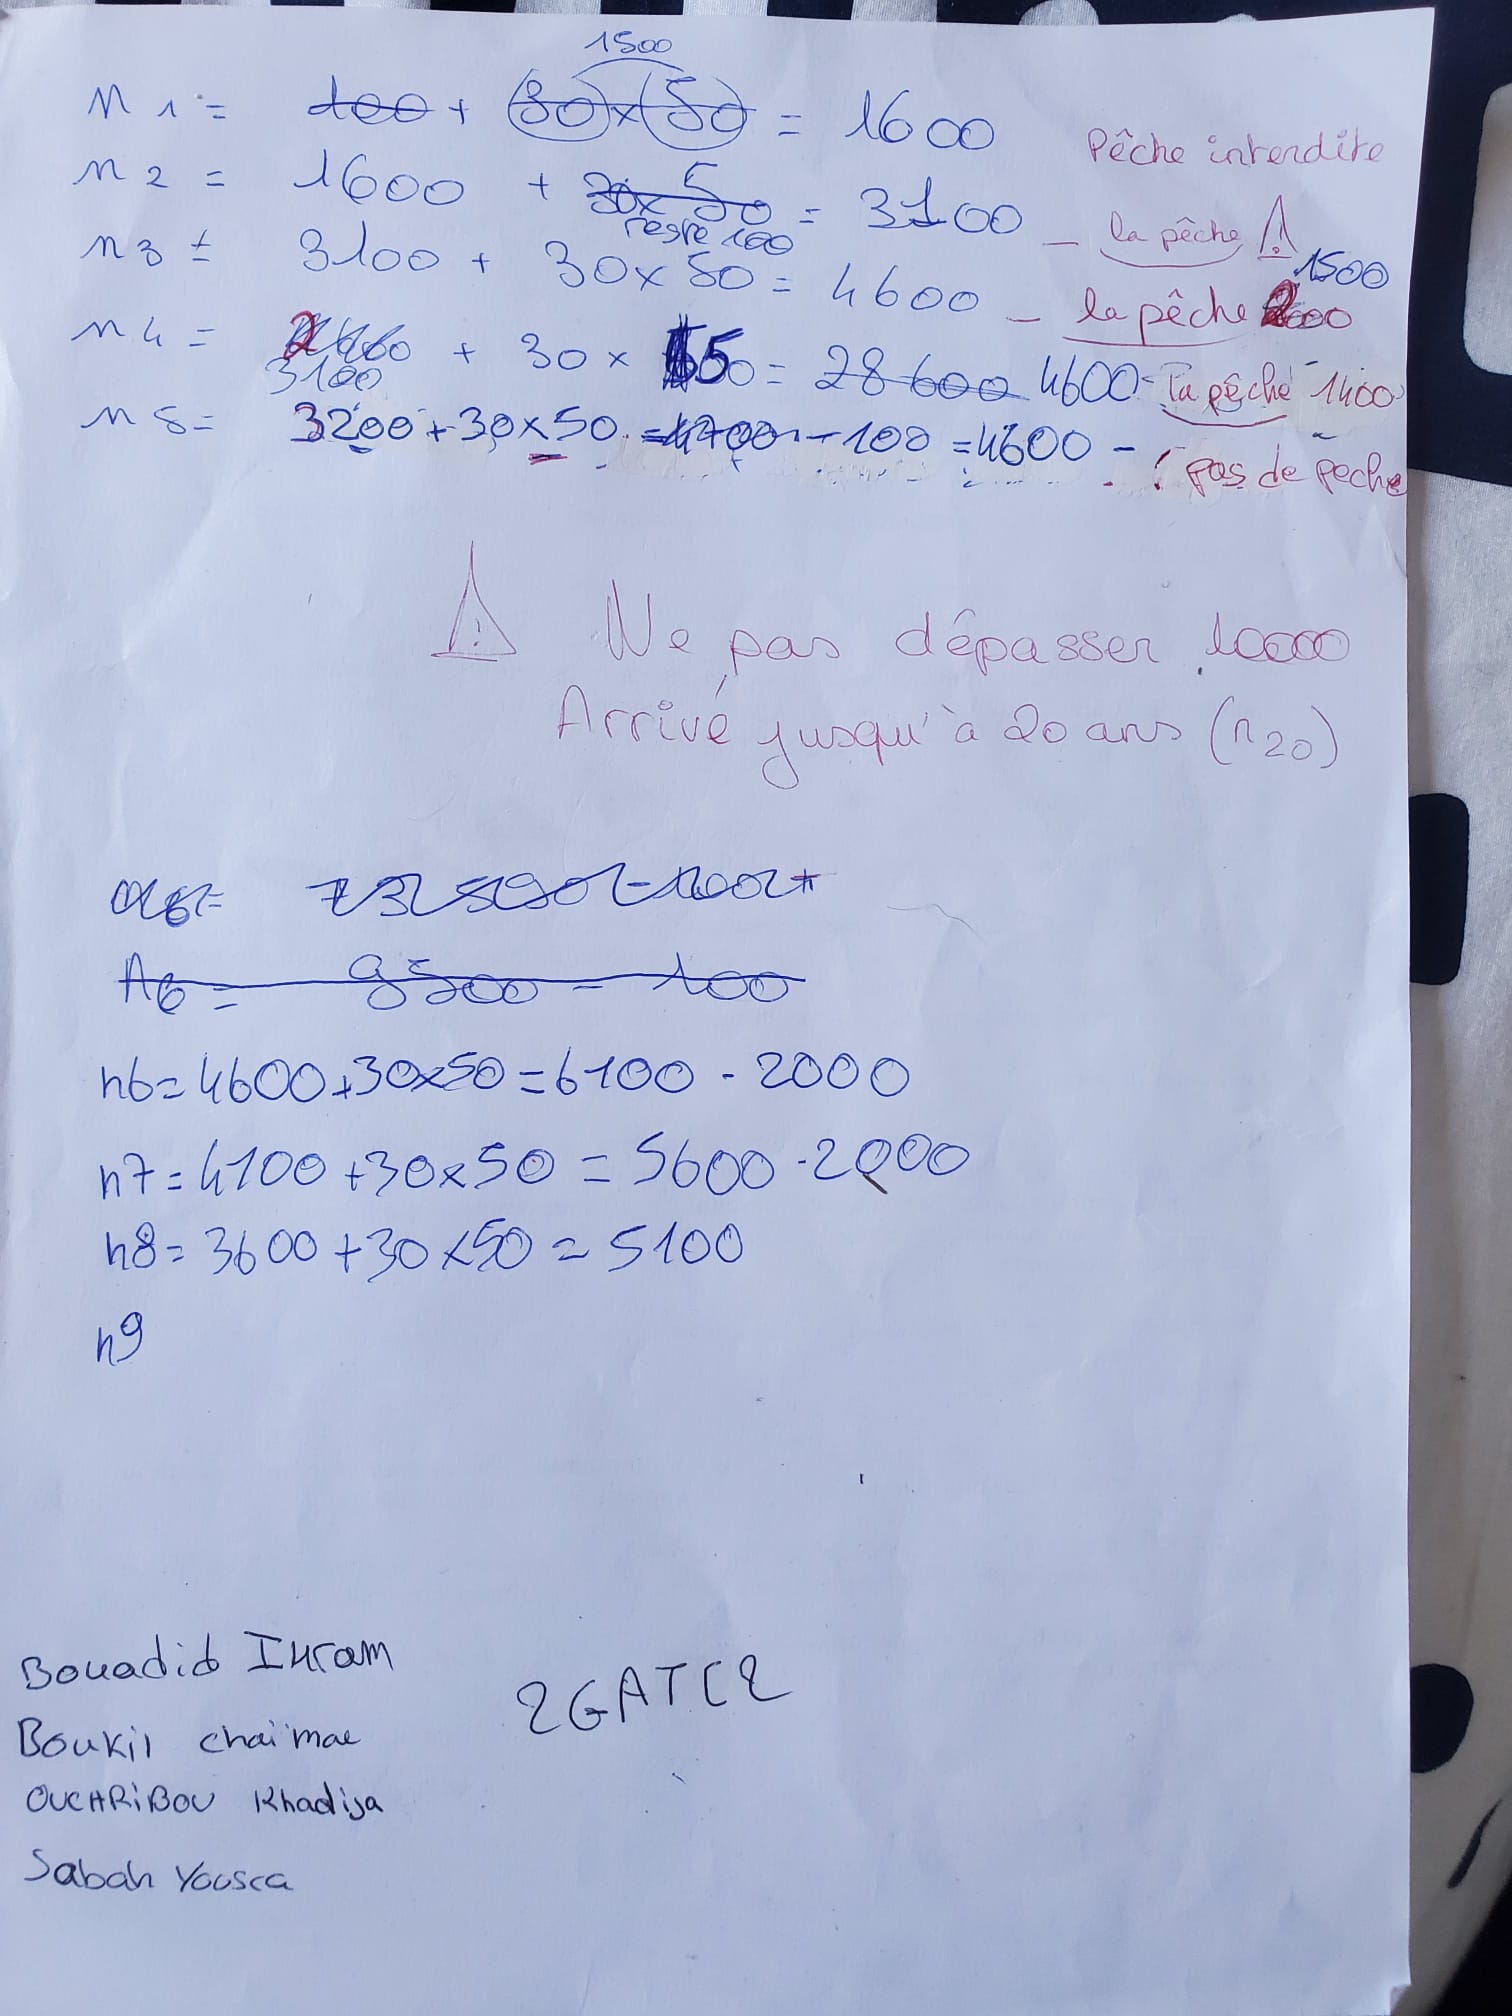 1500
n1 = 100 + (30)x(50) = 1600 Pêche interdite
n2 = 1600 + 30x 50 = 3100 - la pêche
reste 100
n3 = 3100 + 30x50 = 4600 - la pêche 2000 1500
n4 = 3100 + 30 x 50 = 28600 4600 - la pêche 1400
n5 = 3200 + 30x50 = 4700 - 100 = 4600 - ! pas de peche
! Ne pas dépasser 10000
Arrivé jusqu'à 20 ans (n20)
A6 = 9500 - 100
n6 = 4600+30x50 = 6100 - 2000
n7 = 4100 +30x50 = 5600 - 2000
n8 = 3600 +30x50 = 5100
n9
Bouadid Ikram
2GATC2
Boukil chaïmae
OUCHARiBOU Khadija
Sabah Yousca